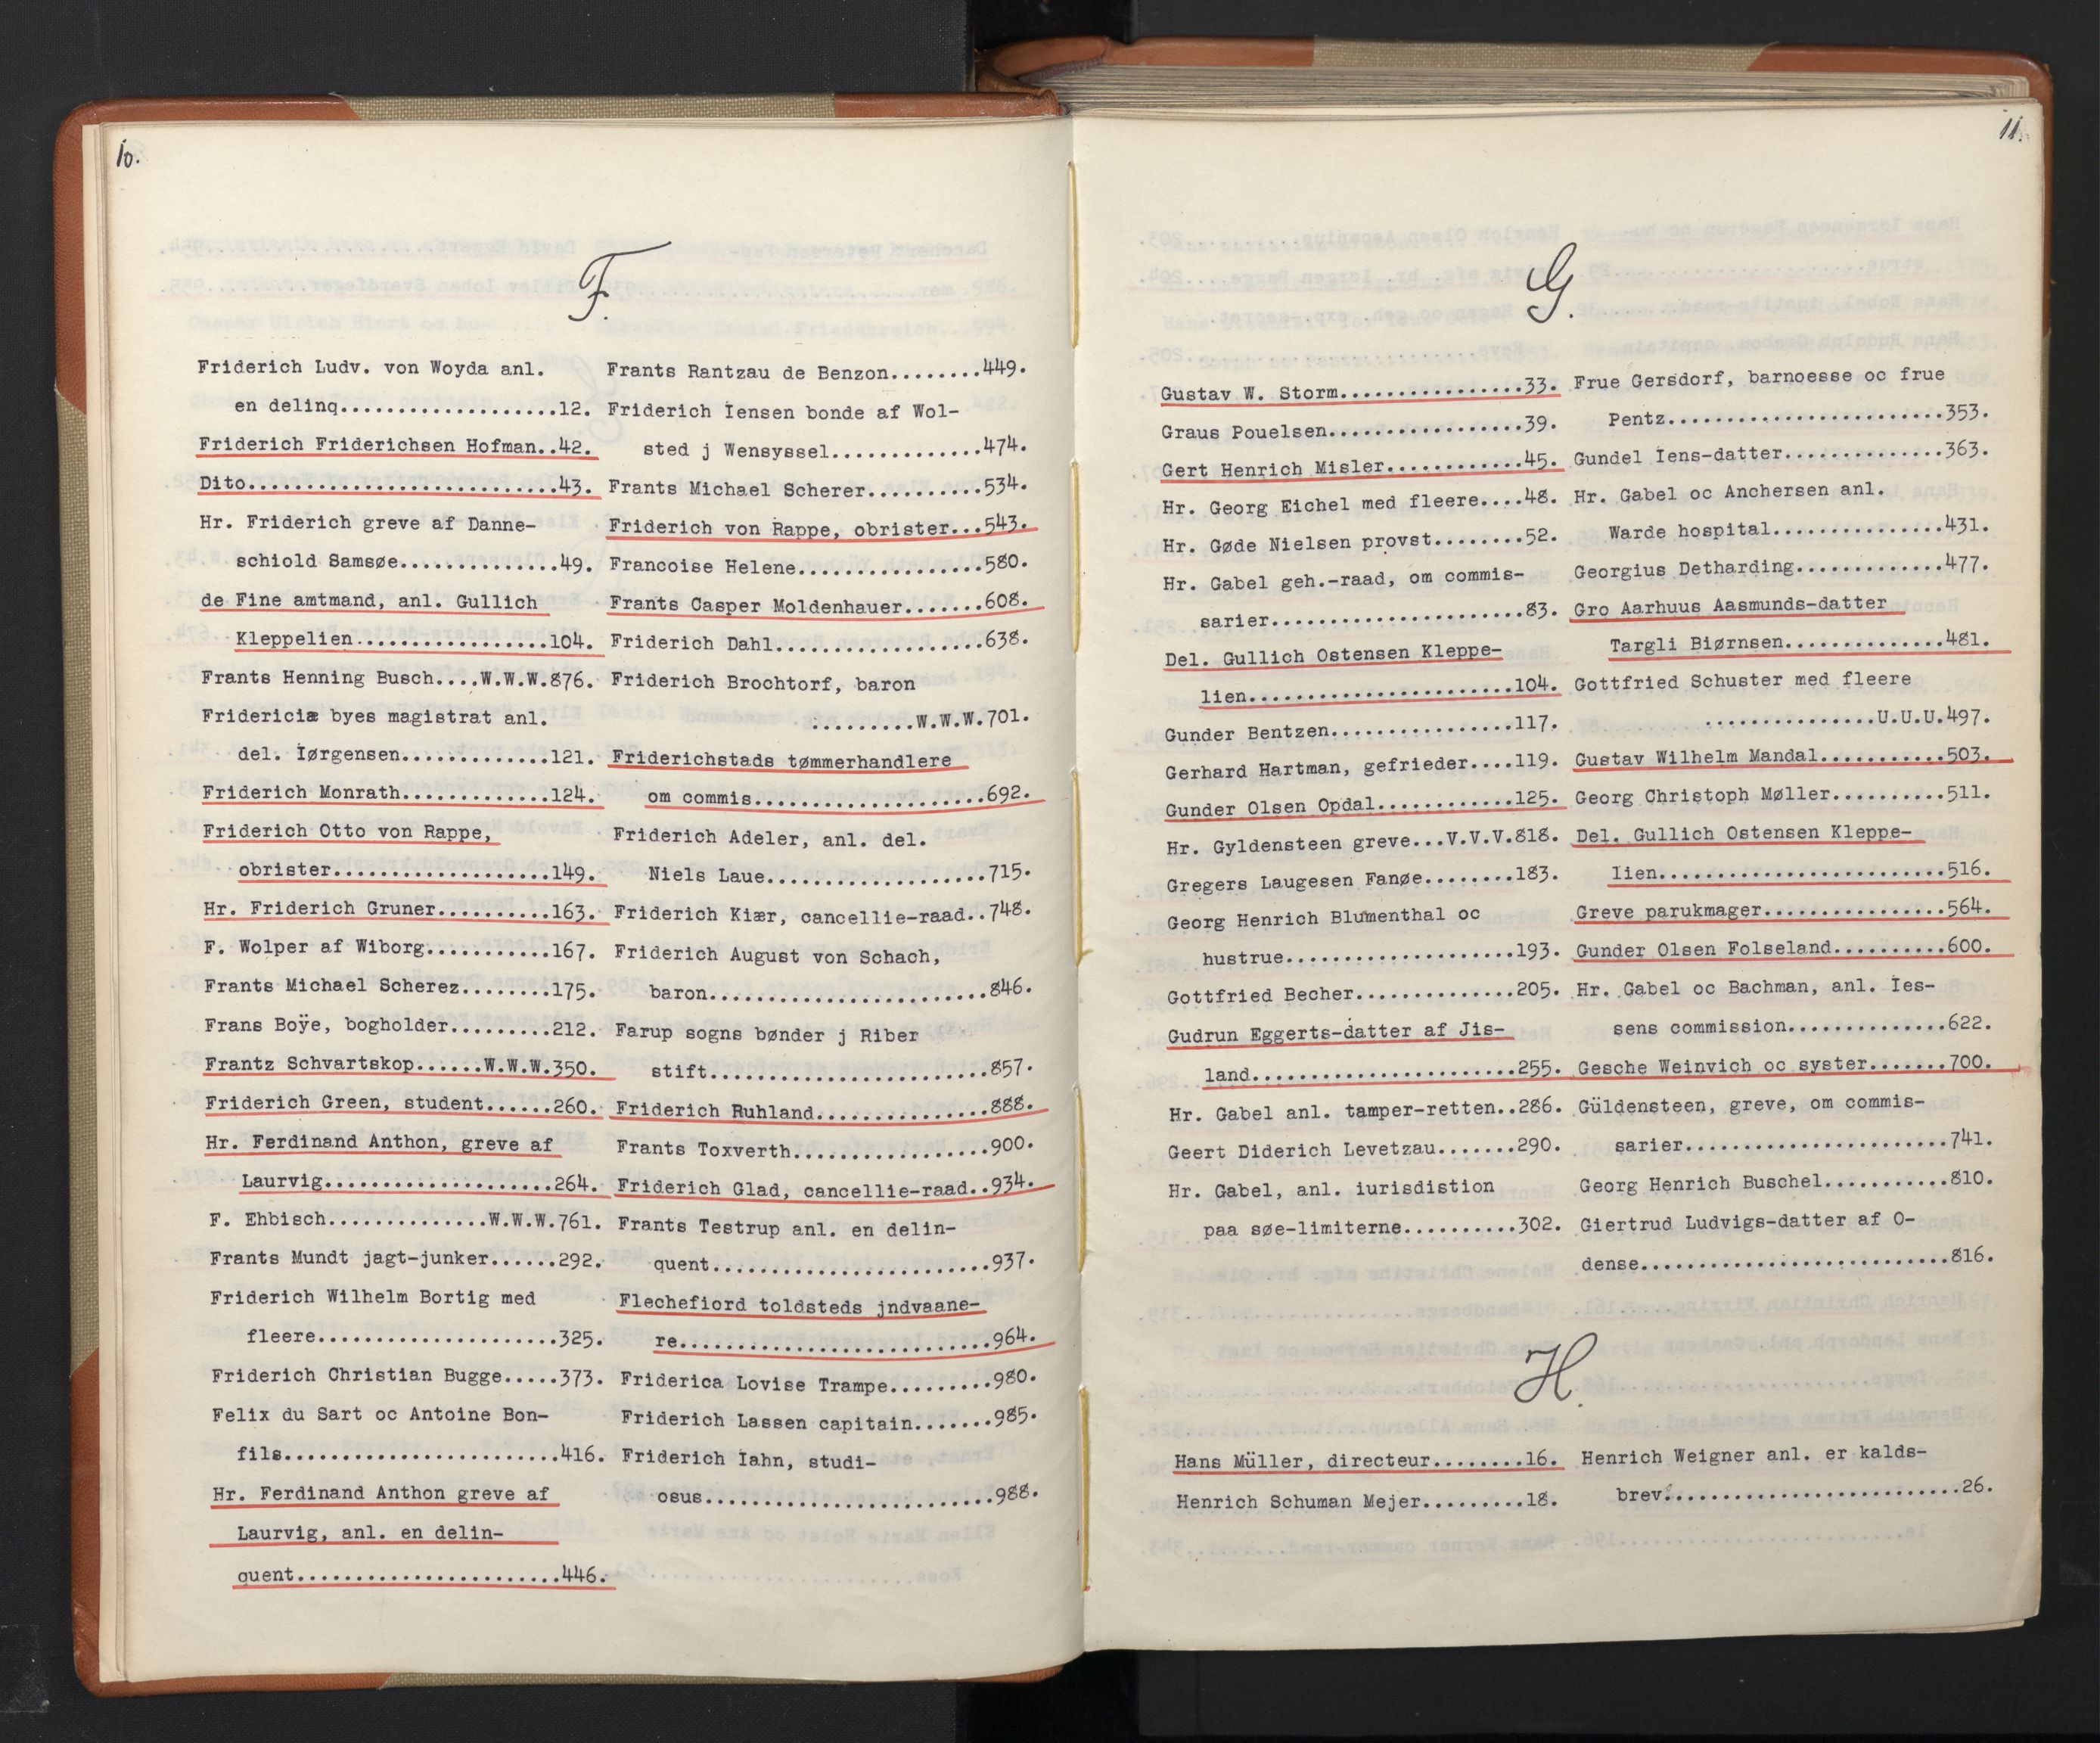 10.
F.
Friderich Ludv. von Woyda anl.
en delinq...................12.
Friderich Friderichsen Hofman..42.
Dito...........................43.
Hr. Friderich greve af Danne-
schiold Samsøe..............49.
de Fine amtmand, anl. Gullich
Kleppelien.................104.
Frants Henning Busch....W.W.W.876.
Fridericiæ byes magistrat anl.
del. Iørgensen.............121.
Friderich Monrath.............124.
Friderich Otto von Rappe,
obrister...................149.
Hr. Friderich Gruner..........163.
F. Wolper af Wiborg...........167.
Frants Michael Scherez........175.
Frans Boÿe, bogholder.........212.
Frantz Schvartskop......W.W.W.350.
Friderich Green, student......260.
Hr. Ferdinand Anthon, greve af
Laurvig....................264.
F. Ehbisch..............W.W.W.761.
Frants Mundt jagt-junker......292.
Friderich Wilhelm Bortig med
fleere.....................325.
Friderich Christian Bugge.....373.
Felix du Sart oc Antoine Bon-
fils........................416.
Hr. Ferdinand Anthon greve af
Laurvig, anl. en delin-
quent.......................446.
Frants Rantzau de Benzon........449.
Friderich Iensen bonde af Wol-
sted j Wensyssel.............474.
Frants Michael Scherer..........534.
Friderich von Rappe, obrister...543.
Francoise Helene................580.
Frants Casper Moldenhauer.......608.
Friderich Dahl..................638.
Friderich Brochtorf, baron
..........W.W.W.701.
Friderichstads tømmerhandlere
om commis....................692.
Friderich Adeler, anl. del.
Niels Laue...................715.
Friderich Kiær, cancellie-raad..748.
Friderich August von Schach,
baron........................846.
Farup sogns bønder j Riber
stift........................857.
Friderich Ruhland...............888.
Frants Toxverth.................900.
Friderich Glad, cancellie-raad..934.
Frants Testrup anl. en delin-
quent........................937.
Flechefiord toldsteds jndvaane-
re...........................964.
Friderica Lovise Trampe.........980.
Friderich Lassen capitain.......985.
Friderich Iahn, studi-
osus.........................988.
11.
G.
Gustav W. Storm................33.
Graus Pouelsen.................39.
Gert Henrich Misler............45.
Hr. Georg Eichel med fleere....48.
Hr. Gøde Nielsen provst........52.
Hr. Gabel geh.-raad, om commis-
sarier......................83.
Del. Gullich Ostensen Kleppe-
lien.......................104.
Gunder Bentzen................117.
Gerhard Hartman, gefrieder....119.
Gunder Olsen Opdal............125.
Hr. Gyldensteen greve...V.V.V.818.
Gregers Laugesen Fanøe........183.
Georg Henrich Blumenthal oc
hustrue....................193.
Gottfried Becher..............205.
Gudrun Eggerts-datter af Jis-
land.......................255.
Hr. Gabel anl. tamper-retten..286.
Geert Diderich Levetzau.......290.
Hr. Gabel, anl. iurisdistion
paa søe-limiterne..........302.
Frue Gersdorf, barnoesse oc frue
Pentz........................353.
Gundel Iens-datter..............363.
Hr. Gabel oc Anchersen anl.
Warde hospital...............431.
Georgius Detharding.............477.
Gro Aarhuus Aasmunds-datter
Targli Biørnsen..............481.
Gottfried Schuster med fleere
................U.U.U.497.
Gustav Wilhelm Mandal...........503.
Georg Christoph Møller..........511.
Del. Gullich Ostensen Kleppe-
lien.........................516.
Greve parukmager................564.
Gunder Olsen Folseland..........600.
Hr. Gabel oc Bachman, anl. Ies-
sens commission..............622.
Gesche Weinvich oc syster.......700.
Güldensteen, greve, om commis-
sarier.......................741.
Georg Henrich Buschel...........810.
Giertrud Ludvigs-datter af O-
dense...........................816.
H.
Hans Müller, directeur........16.
Henrich Schuman Mejer.........18.
Henrich Weigner anl. er kalds-
brev..........................26.